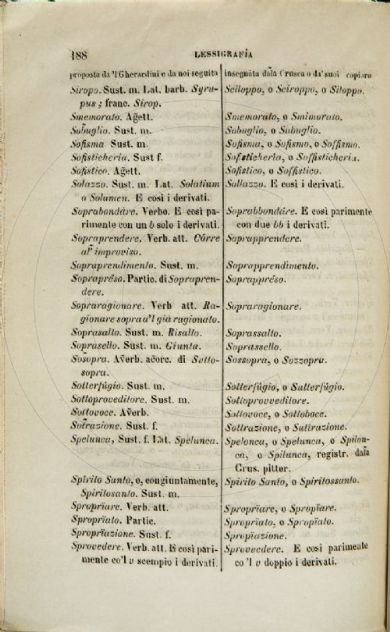 188
LESSIGRAFÍA
proposta da 'l Gherardini e da noi seguita
Siropo. Sust. m. Lat. barb. Syru-
pus; franc. Sirop.
Smemorato. Aggett.
Sobuglio. Sust. m.
Sofisma Sust. m.
Sofisticheria. Sust f.
Sofistico. Aggett.
Solazzo. Sust. m. Lat. Solatium
o Solamen. E così i derivati.
Soprabondáre. Verbo. E così pa-
rimente con un b solo i derivati.
Soprapprendere. Verb. att. Côrre
all'improviso.
Soprapprendimento. Sust. m.
Sopraprêso. Partic. di Soprapren-
dere.
Sopraragionare. Verb att. Ra-
gionare sopra a 'l già ragionato.
Soprasalto. Sust. m. Risalto.
Soprasello. Sust. m. Giunta.
Sosopra. Averb. acorc. di Sotto-
sopra.
Sotterfúgio. Sust. m.
Sottoproveditore. Sust. m.
Sottovoce. Averb.
Sottrazione. Sust. f.
Spelunca, Sust. f. Lat. Spelunca.
Spirito Santo, o, congiuntamente,
Spiritosanto. Sust. m.
Spropriare. Verb. att.
Spropriato. Partic.
Spropriazione. Sust. f.
Sprovedere. Verb. att. E così pari-
mente co 'l v scempio i derivati.
insegnata dalla Crusca o da' suoi copiato
Sciloppo, o Sciroppo, o Siloppo.
Smemorato, o Smimorato.
Sobuglio, o Subuglio.
Sofisma, o Sofismo, o Soffismo.
Sofisticheria, o Soffisticheria.
Sofistico, o Soffistico.
Sollazzo. E così i derivati.
Soprabbondáre. E così parimente
con due bb i derivati.
Soprapprendere.
Soprapprendimento.
Soprapprêso.
Sopraragionare.
Soprassalto.
Soprassello.
Sossopra, o Sozzopra.
Sotterfúgio, o Sutterfúgio.
Sottoprovveditore.
Sottovoce, o Sottoboce.
Sottrazione, o Suttrazione.
Spelonca, o Spelunca, o Spilon-
ca, o Spilunca, registr. dalla
Crus. pitter.
Spirito Santo, o Spiritossanto.
Spropriare, o Spropiare.
Spropriato, o Spropiato.
Spropiazione.
Sprovvedere. E così parimente
co 'l v doppio i derivati.